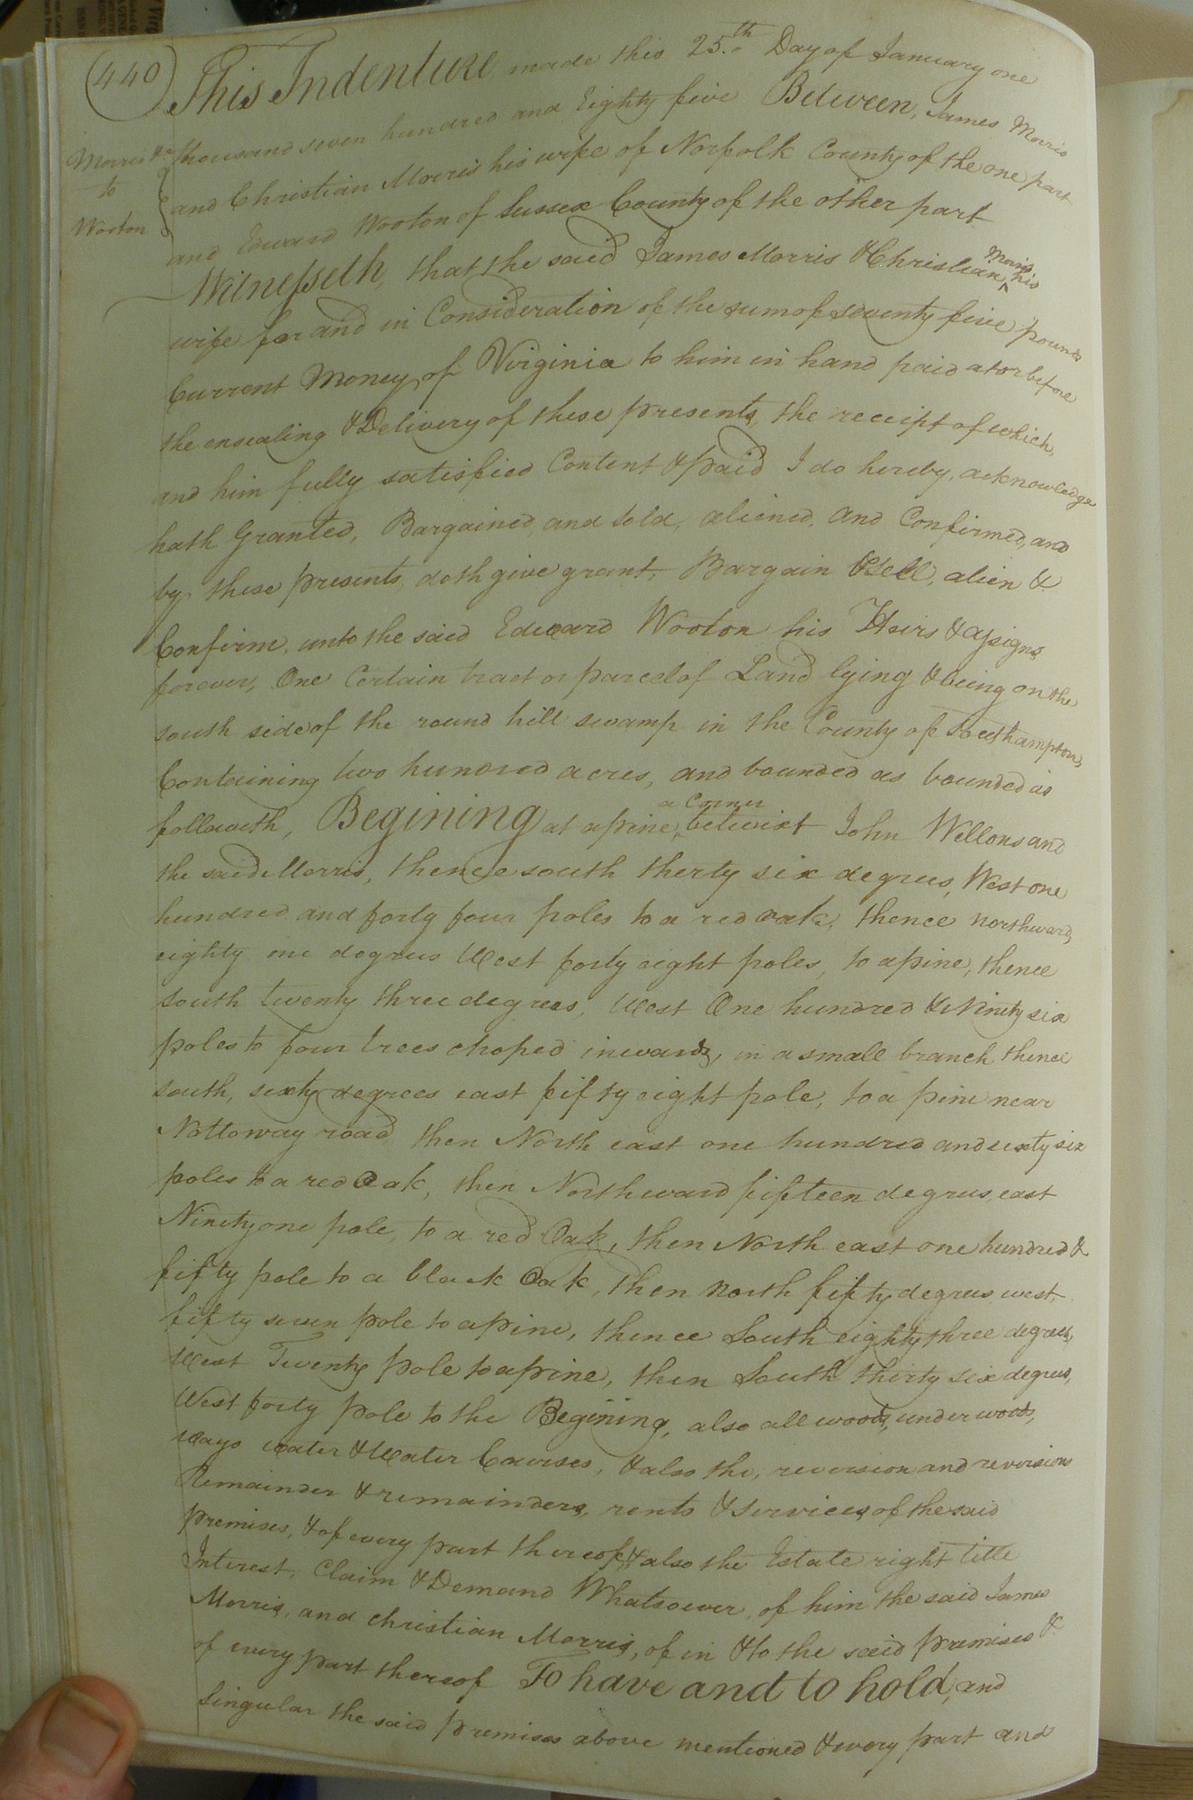 (440)
This Indenture made this 25.th Day of January one
Morris &c
to
Wooton
thousand seven hundred and Eighty five Between, James Morris
and Christian Morris his wife of Norfolk County of the one part
and Edward Wooton of Sussex County of the other part
Witnesseth, that the said James Morris & Christian Morris his
wife for and in Consideration of the sum of seventy five pounds
Current Money, of Virginia to him in hand paid at or before
the ensealing & Delivery of these presents, the receipt of which,
and him fully satisfied Content & paid I do hereby, acknowledge
hath Granted, Bargained, and sold, aliened, and Confirmed, and
by these presents, doth give grant, Bargain & Sell, alien &
Confirm, unto the said Edward Wooton his Heirs & assigns
forever, One Certain tract or parcel of Land lying & being on the
south side of the round hill swamp in the County of Southampton,
Containing two hundred acres, and bounded as bounded as
followeth, Begining at a pine, a Corner betwixt John Wellons and
the said Morris, thence south therty six degrees, West one
hundred and forty four poles to a red oak, thence northward,
eighty one degrees West forty eight poles, to a pine, thence
south twenty three degrees, West One hundred & Ninety six
poles to four trees choped inwards, in a small branch thence
south, sixty degrees east fifty eight pole, to a pine near
Nottoway road, then North east one hundred and sixty six
poles to a red Oak, then Northward fifteen degrees, east
Ninety one pole, to a red Oak, then North east one hundred &
fifty pole to a black Oak, then north fifty degrees west,
fifty seven pole to a pine, thence South eighty three degrees,
West Twenty pole to a pine, then South thirty six degrees,
West forty pole to the Begining, also all woods, under woods,
ways water & Water Courses, & also the, reversion and reversions
Remainder & remainders, rents & services of the said
premises, & of every part thereof, & also the Estate right title
Interest, Claim & Demand Whatsoever, of him the said James
Morris, and Christian Morris, of in & to the said premises &
of every part thereof To have and to hold, and
Singular the said premises above mentioned & every part and